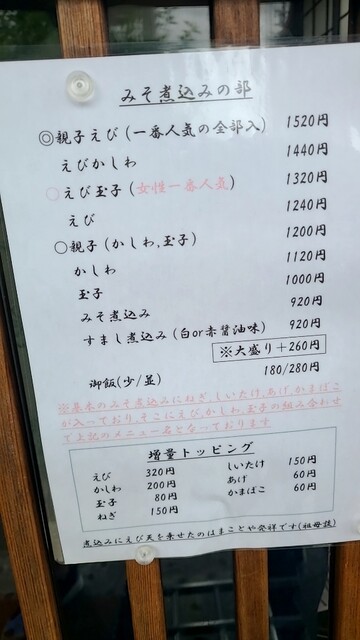 みそ煮込みの部
◎親子えび(一番人気の全部入) 1520円
えびかしわ 1440円
○えび玉子(女性一番人気) 1320円
えび 1240円
○親子(かしわ,玉子) 1200円
かしわ 1120円
玉子 1000円
みそ煮込み 920円
すまし煮込み(白or赤醤油味) 920円
※大盛り+260円
御飯(少/並) 180/280円
※基本のみそ煮込みにねぎ,しいたけ,あげ,かまぼこ
が入っており,そこにえび,かしわ,玉子の組み合わせ
で上記のメニュー名となっております
増量トッピング
えび 320円 しいたけ 150円
かしわ 200円 あげ 60円
玉子 80円 かまぼこ 60円
ねぎ 150円
煮込みにえび天を乗せたのはまことや発祥です(祖母談)